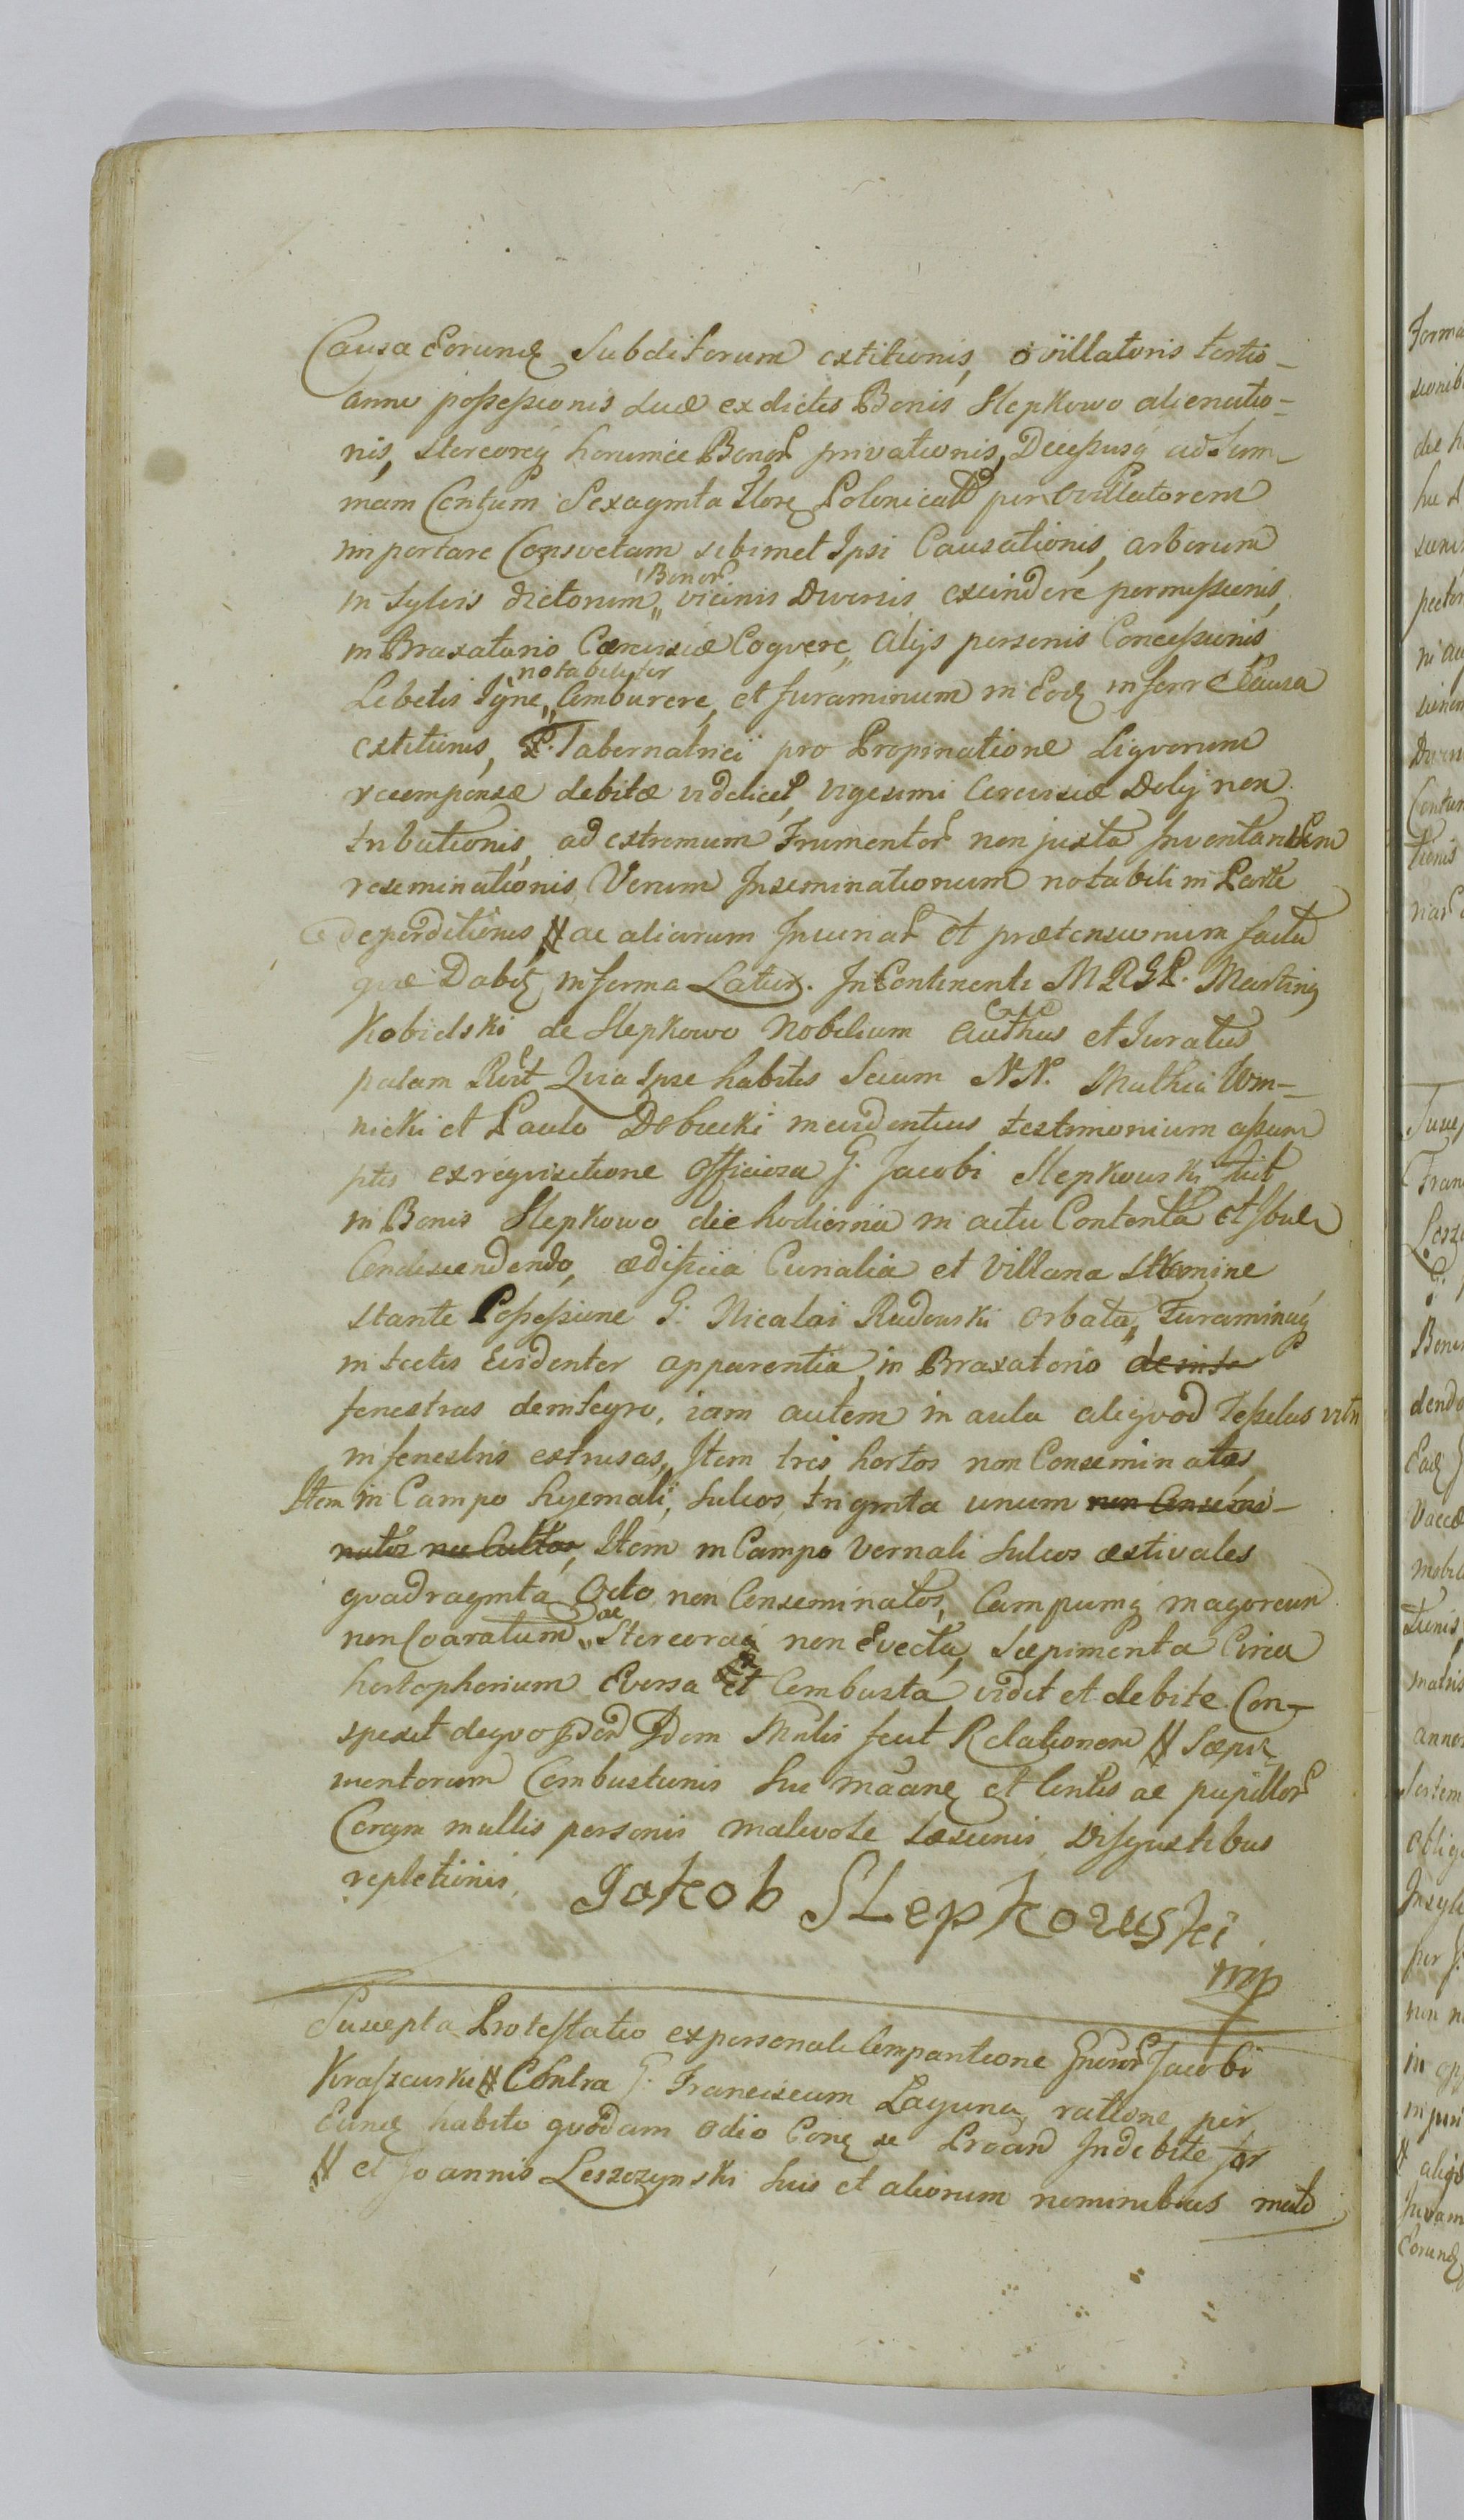 Causa Eorund Subditorum extitionis, ovillatoris tertio-
anno possessionis suæ ex dictis Bonis Slepkowo alienatio-
nis, stercorq horumce Bonor privationis, Decessusq ad sum-
mam Centum Sexaginta Flor Polonicalium per Ovillatorem
importare Consvetam sibimet Ipsi Causationis, arborum
in Sylvis dictorum,, Bonor vicinis Diversis excindere permissionis,
in Braxatorio Cærevisiæ Coqvere,, alijs personis Concessionis,
Lebetis Igne,, notabiliter Comburere, et foraminum in Eod inferr Causa
extitionis, Tabernatrici pro Propinatione Liqvorum
recempensæ debitæ videlicet, vigesimi Cerevisiæ Dolij non
tribationis, ad extremum Frumentor non juxta Inventarium
reseminationis, Verum Inseminationum notabili in Parte
deperditionis # ac aliarum Injuriar et prætensionum factar
qvæ Dabit in forma Latius. In Continenti M R G P. Martinus
Kobielski de Slepkowo Nobilium Authus et Juratus
palam Rcit Qvia Ipse habitis Secum NN. Mathia Win-
nicki et Paulo Dobrecki in evidentius testimonium assum
ptis ex reqvisitione Officiosa G. Jacobi Slepkowski fuit
in Bonis Slepkowo die hodierna in actu Contenta et ibidem
Condescendendo, ædificia Curialia et Villana stramine
stante Possessione G. Nicolai Rudowski orbata,, Foraminaq
in tectis Evidenter apparentia, in Braxatorio
fenestras de integro, iam autem in aula aliqvod Tesselas vitri
in fenestris extrusas, Item tres hortos non Conseminatos
Item in Campo hyemali, sulcos, triginta unum non Consemi-
natos nec Cultos, Item in Campo Vernali sulcos æstivales
qvadraginta Octo non Conseminatos, Campumq magorcum
non Coaratum,, ac Stercoraq non Evecta, sæpimenta Circa
hortophorium Eversa et Combusta, vidit et debite Con-
spexit de qvo Idem Mnlis fecit Relationem # Sæpi
mentorum Combustionis suæ maane et lentis ac pupillor
Coram multis personis malevole læsionis, disgustibus
repletionis,
Jakob SLepkowski
mp
Suscepta Protestatio ex personali Comparitione Gnror Jacobi
Kraszewski # Contra G. Franciscum Laguna, ratione per
Eund habito qvodam odio Cone se Proand Indebite for
# et Joannis Leszczynski suis et aliorum nominibus